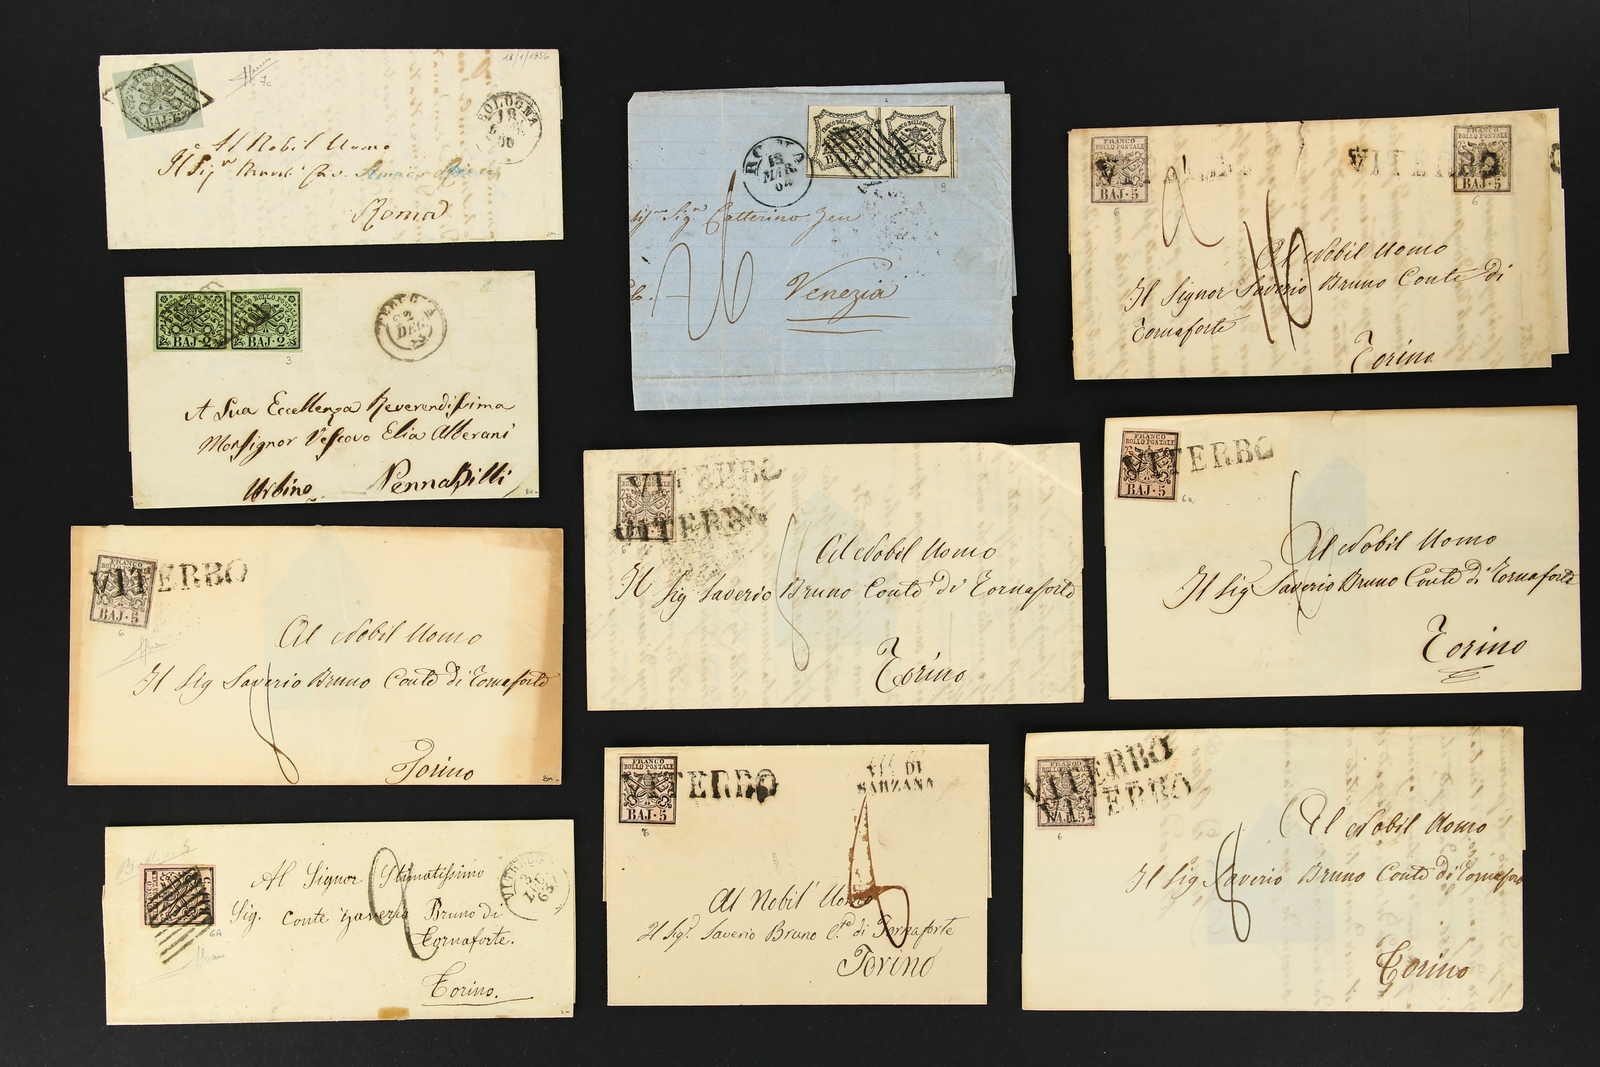 18/1/1856
7c
BAJ-6
BOLOGNA
18
Al Nobil Uomo
Il Sigr
Roma
BOLLO POSTALE
BOLLO POSTALE
BAJ-2
BAJ-2
3
22
DEC
A Sua Eccellenza Reverendissima
Monsignor Vescovo Elia Alberani
Urbino
Pennabilli
FRANCO
BAJ-5
VITERBO
6
Al Nobil Uomo
Il Sig Saverio Bruno Conte di Tornaforte
8
Torino
6A
VITERBO
Al Signor Stimatissimo
Sig. Conte Zaverio Bruno di
Tornaforte.
Torino.
ROMA
18
MAR
64
BAJ 8
8
Sigr Catterino Zen
Venezia
VITERBO
VITERBO
Al Nobil Uomo
Il Sig Saverio Bruno Conte di Tornaforte
8
Torino
FRANCO
BOLLO POSTALE
BAJ-5
VITERBO
VIA DI
SARZANA
8
Al Nobil Uomo
Il Sigr Saverio Bruno C.te di Tornaforte
Torino
FRANCO
BOLLO POSTALE
BAJ-5
6
VITERBO
FRANCO
BOLLO POSTALE
BAJ-5
6
16
Al Nobil Uomo
Il Signor Saverio Bruno Conte di
Tornaforte
Torino
FRANCO
BOLLO POSTALE
BAJ-5
VITERBO
6a
Al Nobil Uomo
Il Sig Saverio Bruno Conte di Tornaforte
Torino
VITERBO
VITERBO
FRANCO
BOLLO POSTALE
BAJ-5
6
Al Nobil Uomo
Il Sig Saverio Bruno Conte di Tornaforte
8
Torino